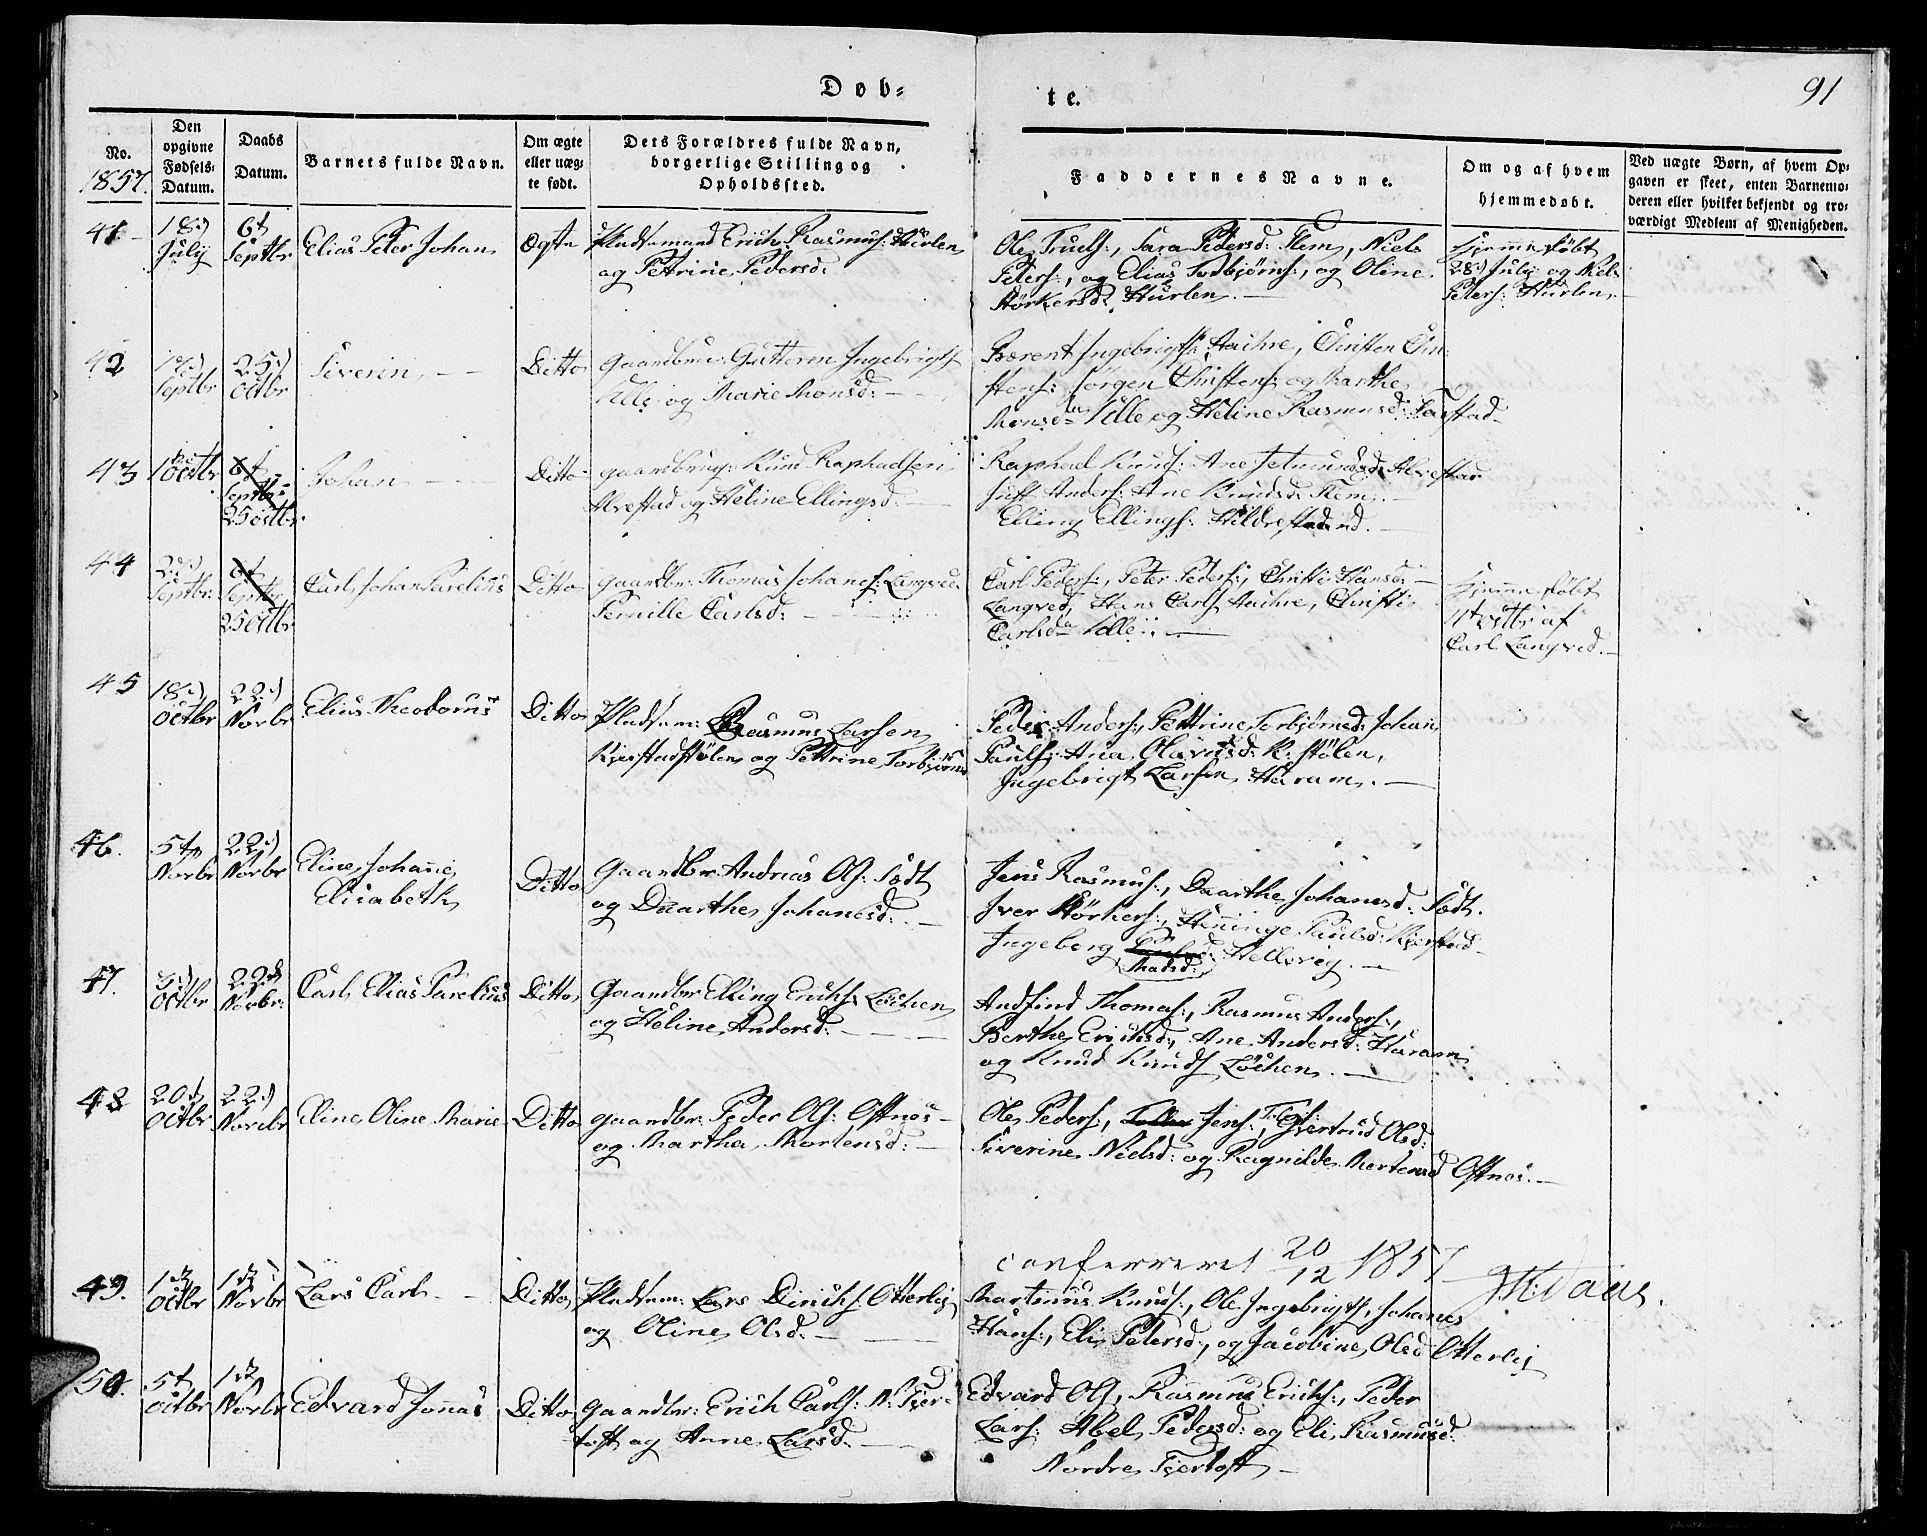 Døb-
te.
91
No.
1857.
Den
opgivne
Fødsels-
Datum.
Daabs
Datum.
Barnets fulde Navn.
Om ægte
eller uæg-
te født.
Dets Forældres fulde Navn,
borgerlige Stilling og
Opholdssted.
Faddernes Navne.
Om og af hvem
hjemmedøbt.
Ved uægte Børn, af hvem Op-
gaven er skeet, enten Barnemo-
deren eller hvilket bekjendt og tro-
værdigt Medlem af Menigheden.
41
18
July
6t
Septbr
Elias Peter Johan
Ægte
Pladsemand Erich Rasmus: Hurlen
og Petrine Pedersd:
Ole Truels:, Sara Pedersd: Flem, Niels
Peders:, og Elias Torbjörns:, og Oline
Störkersd: Hurlen.
Hjemmedöbt
28 July og Niels
Peders: Hurlen.
42
17
Septbr
25
Octbr
Siverin
Ditto
Gaardbru: Guttorm Ingebrigts
Ulle og Marie Monsd:
Berent Ingebrigts: Hauhre, Christen Chri-
stens: Jörgen Christens: og Marthe
Monsd: Ulle og Heline Rasmusd: Farstad
43
1
Octbr
6t
Septbr
25 Octbr
Johan
Ditto
Gaardbrug: Knud Raphaelsen
Alvestad og Heline Ellingsd:
Raphael Knuds: Ane Alvestad
Anders: Ane Knudsd: Flem.
Elling Ellings: Hildrestrand.
44
Septbr:
6t
Septbr
25 Octbr
Carl Johan Parelius
Ditto
Gaardbr: Thomas Johans: Langved
Pernille Carlsd:
Carl Peders:, Peter Peders:, Christi Hansd:
Langved, Hans Carls Hauhre, Christi
Carlsd: Ulle
Hjemmedöbt
11t Octbr af
Carl Langved.
45
18
Octbr
22
Novbr
Elias Theodorus
Ditto
Pladsem: Rasmus Larsen
Kjerstadstölen og Pettrine Torbjörns
Peder Anders:, Pettrine Torbjörnsd: Johan
Pauls: Ana Olavusd: K: stölen,
Ingebrigt Larsen Haram.
46.
5t
Novbr
22
Novbr
Eline Johanne
Elisabeth
Ditto
Gaardbr: Andreas Ols: Södt
og Daarthe Johanesd:
Jens Rasmus:, Daarthe Johanesd: Södt.
Iver Störkers:, Henninge Paulsd: Kjerstad
Ingeborg Hellevig.
Madsd:
47.
3
Octbr
22
Novbr:
Carl Elias Parelius
Ditto
Gaardbr Elling Erichs Löchen
og Heline Andersd:
Andfind Thomas:, Rasmus Anders:,
Berthe Erichsd:, Ane Andersd: Haram
og Knud Knuds Löchen.
48
20
Octbr
22
Novbr
Eline Oline Marie
Ditto
Gaardbr: Peder Ols: Oftnes
og Martha Mortensd:
Ole Peders:, Jens: Gjertrud Olsd:
Siverine Nielsd: og Ragnilde Mortensd Oftnes.
conferreret 20/12 1857
49.
1
Octbr
1
Novbr
Lars Carl
Ditto
Pladsem: Lars Dirichs Otterlej
og Oline Olsd:
Martinus Knuds:, Ole Ingebrigts, Johanes
Hans:, Eli Petersd:, og Jacobine Olsd Otterlej
50.
5t
Octbr
1
Novbr
Edvard Jonas
Ditto
Gaardbr: Erich Carls: N: Fjer-
toft og Anne Larsd:
Edvard Ols, Rasmus Erichs:, Peder
Lars: Abel Pedersd: og Eli Rasmusd:
Nordre Fjertoft